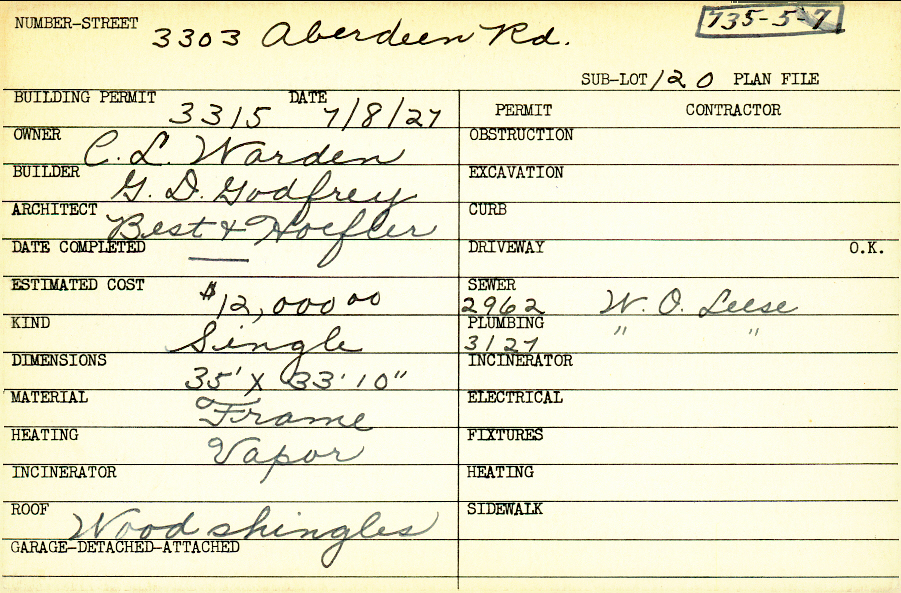 NUMBER-STREET 3303 Aberdeen Rd. 735-5-7
SUB-LOT 120 PLAN FILE
BUILDING PERMIT 3315 DATE 7/8/27
PERMIT CONTRACTOR
OWNER C. L. Warden
OBSTRUCTION
BUILDER G. D. Godfrey
EXCAVATION
ARCHITECT Best & Hoefler
CURB
DATE COMPLETED —
DRIVEWAY O.K.
ESTIMATED COST $12,000 00
SEWER 2962 W. O. Leese
KIND Single
PLUMBING 3127 " "
DIMENSIONS 35' X 33' 10"
INCINERATOR
MATERIAL Frame
ELECTRICAL
HEATING Vapor
FIXTURES
INCINERATOR
HEATING
ROOF Wood shingles
SIDEWALK
GARAGE-DETACHED-ATTACHED